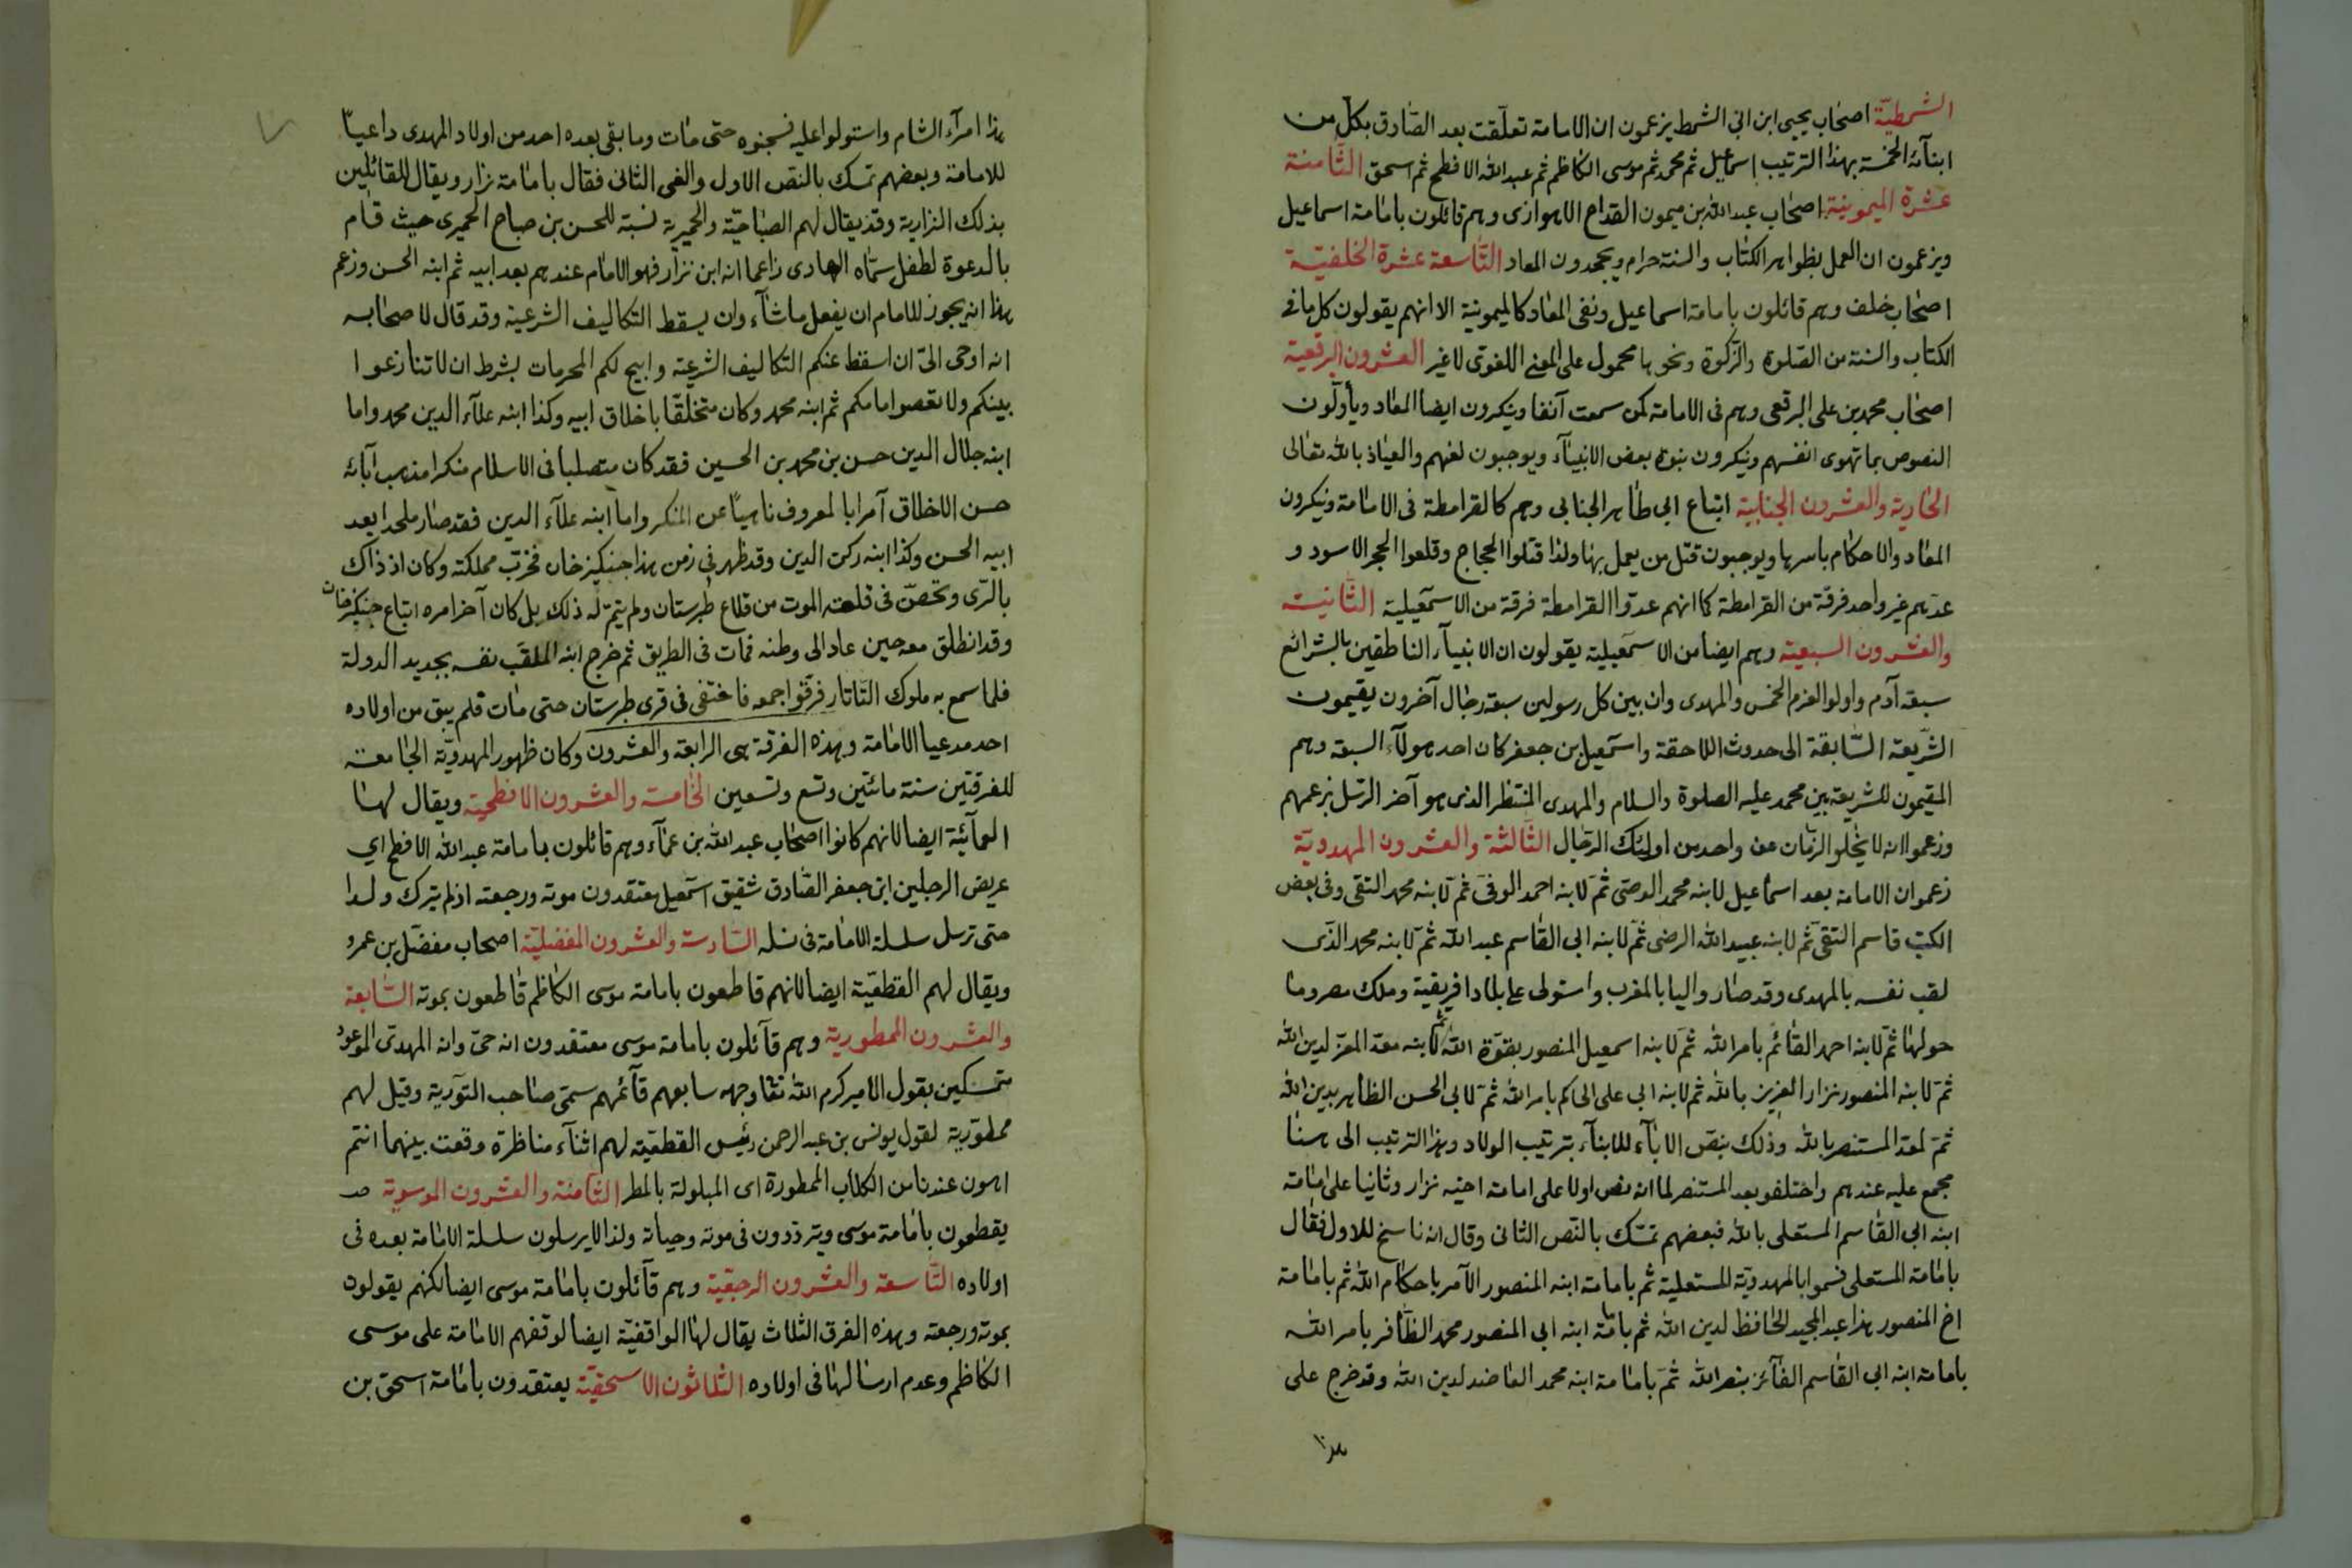 الشمطيّة اصحاب يحيى ابن ابى الشمط يزعمون ان الامامة تعلّقت بعد الصّادق بكل من
ابنآئه الخمسة بهذا الترتيب اسماعيل ثم محمد ثم موسى الكاظم ثم عبد الله الافطح ثم اسحق الثّامنة
عشرة الميمونية اصحاب عبد الله بن ميمون القداح الاهوازى وهم قائلون بامامة اسماعيل
ويزعمون ان العمل بظواهر الكتاب والسنة حرام ويجحدون المعاد التّاسعة عشرة الخلفيّة
اصحاب خلف وهم قائلون بامامة اسماعيل ونفى المعاد كالميمونية الا انهم يقولون كل ما فى
الكتاب والسنة من الصّلوة والزّكوة ونحوها محمول على المعنى اللغوى لا غير العشرون البرقعية
اصحاب محمد بن على البرقعى وهم فى الامامة كمن سمعت آنفا وينكرون ايضا المعاد ويأولون
النصوص بما تهوى انفسهم وينكرون نبوة بعض الانبيآء ويوجبون لعنهم والعياذ بالله تعالى
الحادية والعشرون الجنابية اتباع ابى طاهر الجنابى وهم كالقرامطة فى الامامة وينكرون
المعاد والاحكام باسرها ويوجبون قتل من يعمل بها ولذا قتلوا الحجاج وقلعوا الحجر الاسود و
عدّهم غير واحد فرقة من القرامطة كما انهم عدّوا القرامطة فرقة من الاسمعيلية الثّانية
والعشرون السبعية وهم ايضا من الاسمعيلية يقولون ان الانبيآء الناطقين بالشرائع
سبعة آدم واولوا العزم الخمس والمهدى وان بين كل رسولين سبعة رجال آخرون يقيمون
الشّريعة السّابقة الى حدوث اللاحقة واسمعيل بن جعفر كان احد هولآء السبعة وهم
المقيمون للشريعة بين محمد عليه الصلوة والسلام والمهدى المنتظر الذى هو آخر الرّسل بزعمهم
وزعموا انه لا يخلو الزمان عن واحد من اولئك الرّجال الثّالثة والعشرون المهدويّة
زعموا ان الامامة بعد اسماعيل لابنه محمد الوصى ثمّ لابنه احمد الوفىّ ثمّ لابنه محمد التقى وفى بعض
الكتب قاسم التقىّ ثمّ لابنه عبيد الله الرضى ثمّ لابنه ابى القاسم عبد الله ثمّ لابنه محمد الذى
لقب نفسه بالمهدى وقد صار واليا بالمغرب واستولى على بلاد افريقية وملك مصر وما
حولها ثمّ لابنه احمد القائم بامر الله ثمّ لابنه اسمعيل المنصور بقوّة الله ثم لابنه معدّ المعزّ لدين الله
ثمّ لابنه المنصور نزار العزيز بالله ثم لابنه ابى على الحاكم بامر الله ثمّ لابى الحسن الظاهر بدين الله
ثمّ لمعدّ المستنصر بالله وذلك بنصّ الاباء للابنآء بترتيب الولاد وهذا الترتيب الى هنا
مجمع عليه عندهم واختلفو بعد المستنصر لما انه نص اولا على امامة اخيه نزار وثانيا على امامة
ابنه ابى القاسم المستعلى بالله فبعضهم تمسّك بالنّص الثانى وقال انه ناسخ للاول فقال
بامامة المستعلى فسموا بالمهدويّة المستعلية ثم بامامة ابنه المنصور الآمر باحكام الله ثم بامامة
اخ المنصور هذا عبد المجيد الحافظ لدين الله ثم بامامة ابنه ابى المنصور محمد الظّافر بامر الله
بامامة ابنه ابى القاسم الفآئز بنصر الله ثمّ بامامة ابنه محمد العاضد لدين الله وقد خرج على
هذا
هذا امرآء الشام واستولوا عليه فسجنوه حتى مات وما بقى بعده احد من اولاد المهدى داعيا
للامامة وبعضهم تمسك بالنصّ الاول والغى الثانى فقال بامامة نزار ويقال للقائلين
بذلك النزارية وقد يقال لهم الصباحيّة والحميرية نسبة للحسن بن صباح الحميرى حيث قام
بالدعوة لطفل سمّاه الهادى زاعما انه ابن نزار فهو الامام عندهم بعد ابيه ثم ابنه الحسن وزعم
هذا انه يجوز للامام ان يفعل ما شآء وان يسقط التكاليف الشرعية وقد قال لاصحابه
انه اوحى الىّ ان اسقط عنكم التكاليف الشرعيّة وابيح لكم المحرمات بشرط ان لا تنازعوا
بينكم ولا تعصوا امامكم ثم ابنه محمد وكان متخلقا باخلاق ابيه وكذا ابنه علآء الدين محمد واما
ابنه جلال الدين حسن بن محمد بن الحسين فقد كان متصلبا فى الاسلام منكرا مذهب آبائه
حسن الاخلاق آمرا بالمعروف ناهيا عن المنكر واما ابنه علآء الدين فقد صار ملحدا بعد
ابيه الحسن وكذا ابنه ركن الدين وقد ظهر فى زمن هذا جنكيز خان فخرّب مملكته وكان اذ ذاك
بالرّى وتحصّن فى قلعة الموت من قلاع طبرستان ولم يتم له ذلك بل كان آخر امره اتباع جنكيز خان
وقد انطلق معه حين عاد الى وطنه فمات فى الطريق ثم خرج ابنه الملقّب نفسه بجديد الدولة
فلما سمع به ملوك التّاتار فرّقوا جمعه فاختفى فى قرى طبرستان حتى مات فلم يبق من اولاده
احد مدعيا الامامة وهذه الفرقة هى الرابعة والعشرون وكان ظهور المهدويّة الجامعة
للفرقتين سنة مائتين وتسع وتسعين الخامسة والعشرون الافطحية ويقال لها
العمآئية ايضا لانهم كانوا اصحاب عبد الله بن عمآء وهم قائلون بامامة عبد الله الافطح اي
عريض الرجلين ابن جعفر الصّادق شقيق اسمعيل معتقدون موته ورجعته اذ لم يترك ولدا
حتى ترسل سلسلة الامامة فى نسله السّادسة والعشرون المفضليّة اصحاب مفضّل بن عمرو
ويقال لهم القطعيّة ايضا لانهم قاطعون بامامة موسى الكاظم قاطعون بموته السّابعة
والعشرون الممطورية وهم قآئلون بامامة موسى معتقدون انه حىّ وانه المهدى الموعود
متمسكين بقول الامير كرم الله تعا وجهه سابعهم قآئمهم سمىّ صاحب التّورية وقيل لهم
ممطورية لقول يونس بن عبد الرحمن رئيس القطعيّة لهم اثنآء مناظرة وقعت بينهما انتم
اهون عندنا من الكلاب الممطورة اى المبلولة بالمطر الثّامنة والعشرون الموسوية
يقطعون بامامة موسى ويترددون فى موته وحياته ولذا لا يرسلون سلسلة الامامة بعده فى
اولاده التّاسعة والعشرون الرجعية وهم قآئلون بامامة موسى ايضا لكنهم يقولون
بموته ورجعته وهذه الفرق الثلاث يقال لها الواقفيّة ايضا لوقفهم الامامة على موسى
الكاظم وعدم ارسالها فى اولاده الثّلاثون الاسحقيّة يعتقدون بامامة اسحق بن